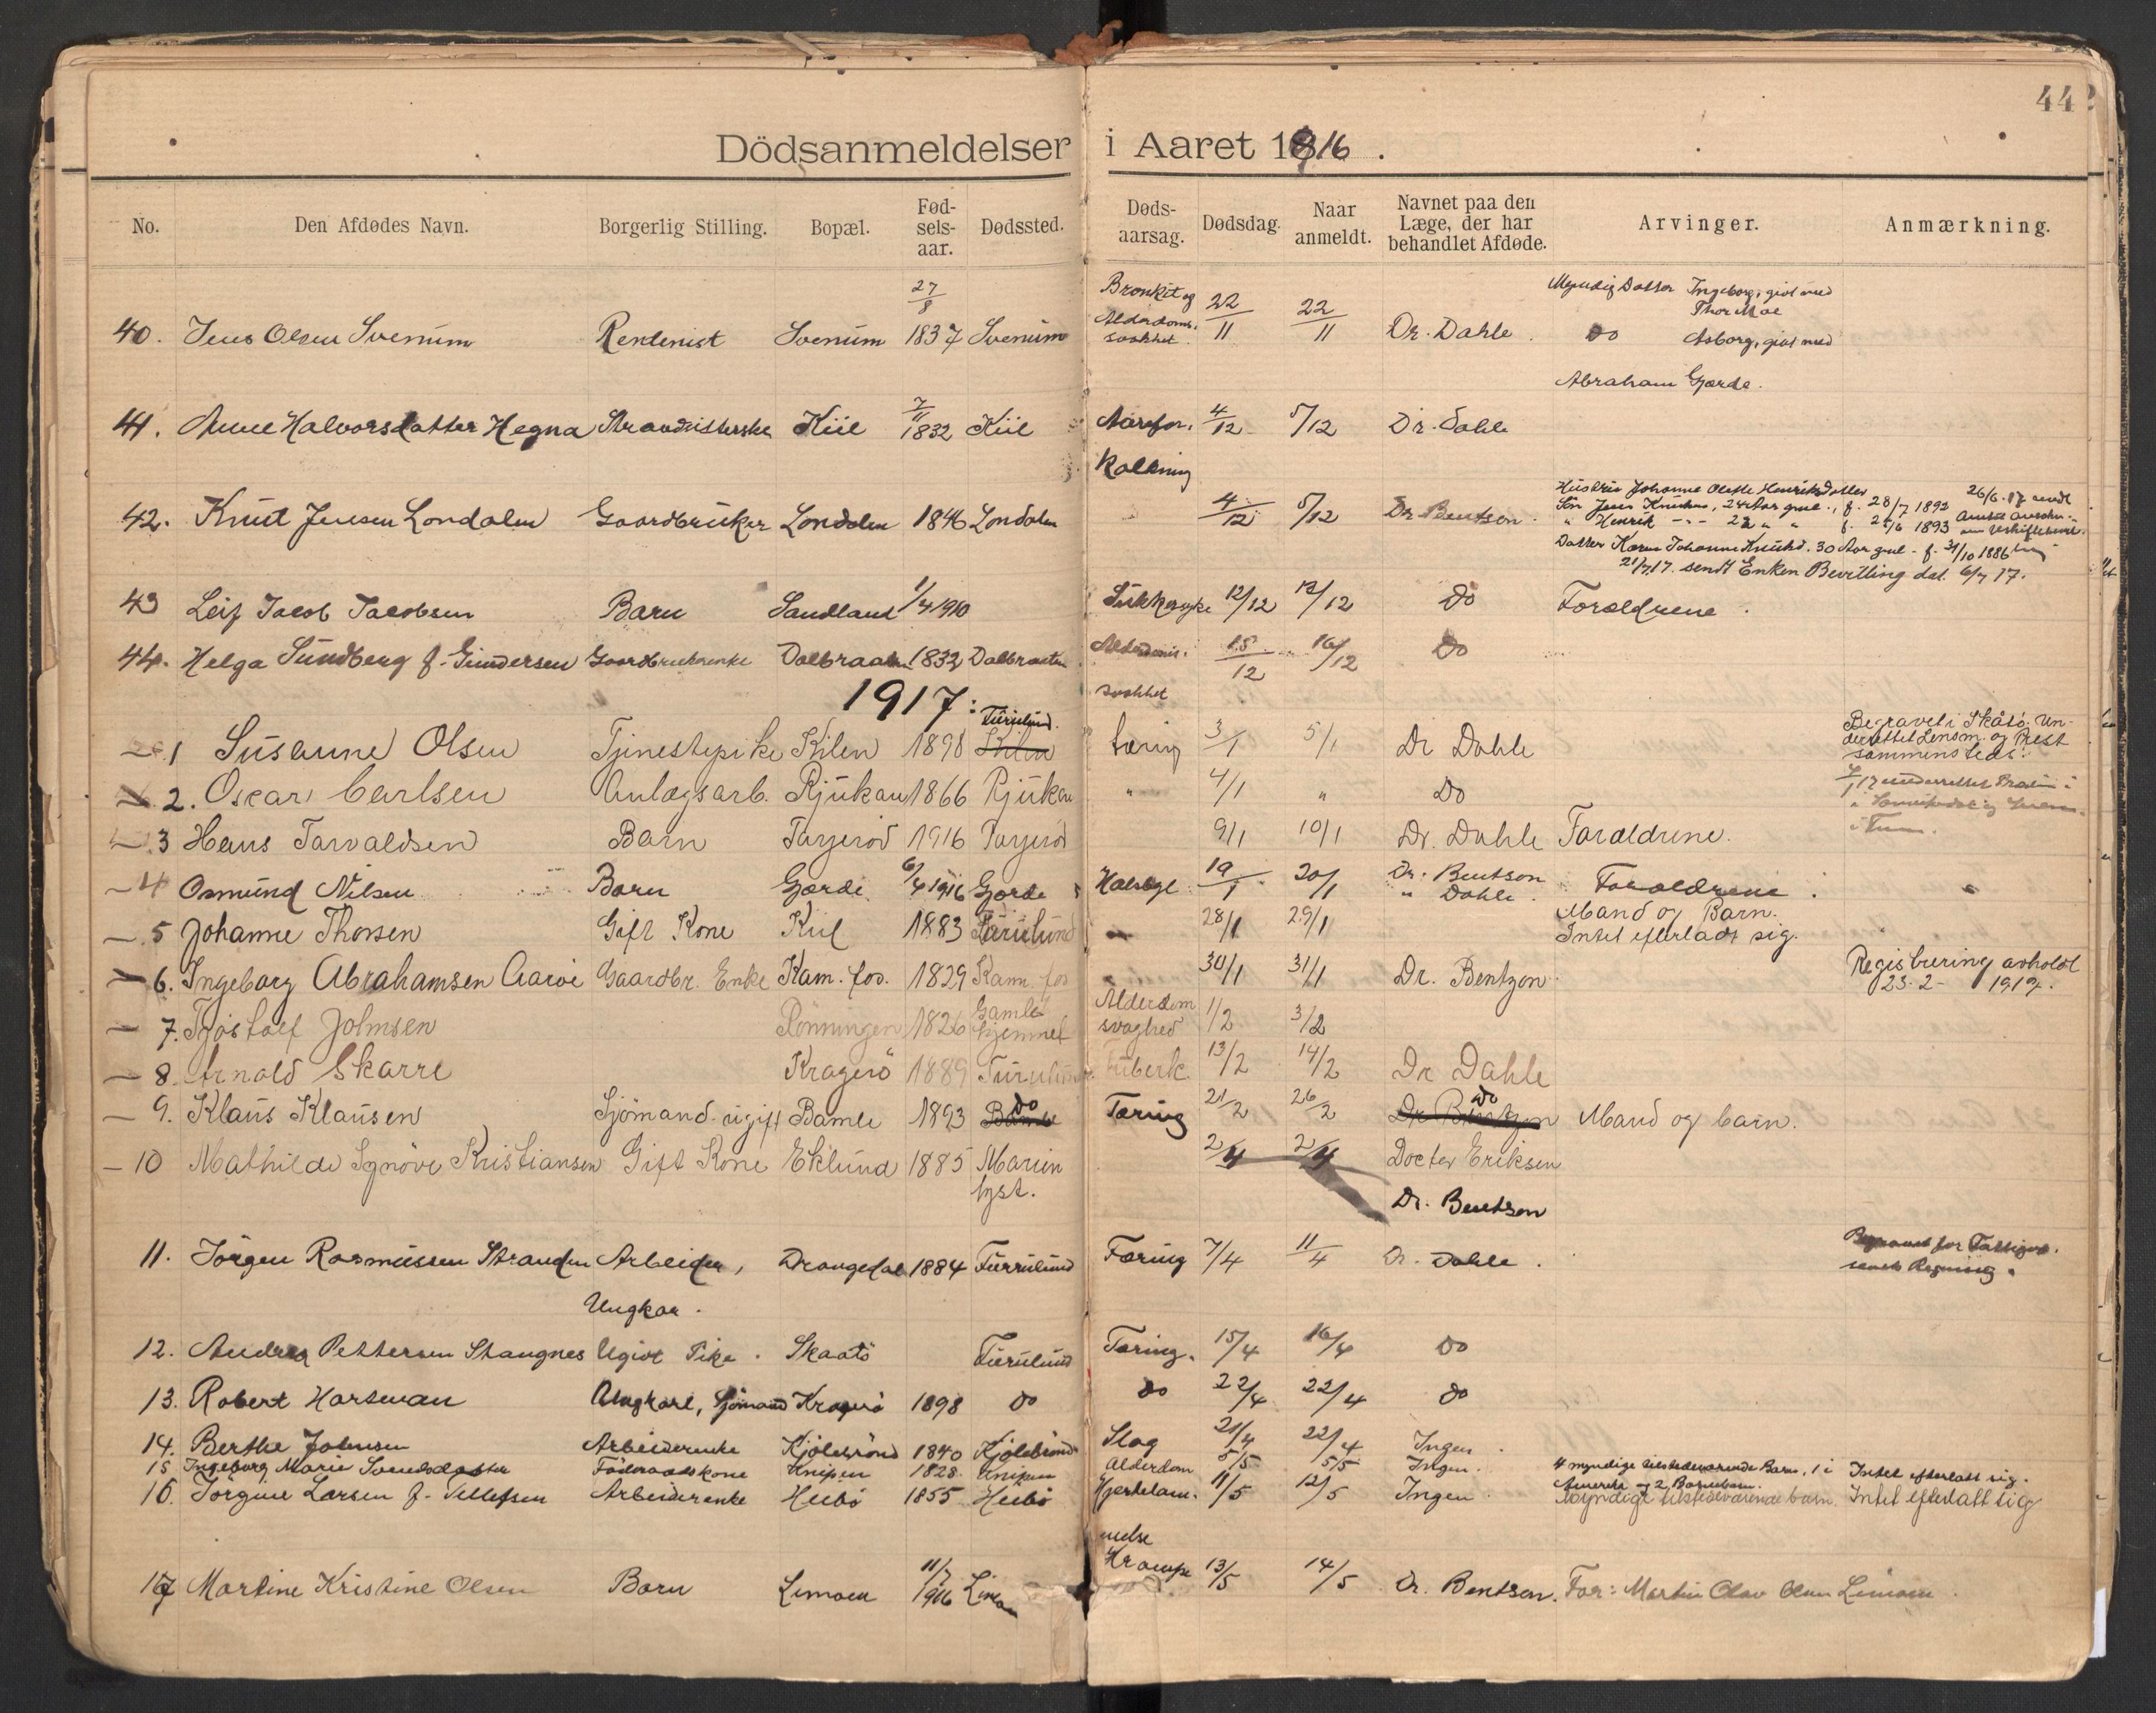 44
Dödsanmeldelser i Aaret 1916.
No. Den Afdødes Navn. Borgerlig Stilling. Bopæl. Fød-sels-aar. Dødssted. Døds-aarsag. Dødsdag. Naar anmeldt. Navnet paa den Læge, der har behandlet Afdøde. Arvinger. Anmærkning.
27/8 Bronkit og Myndig Datter Ingeborg, givt med
Thor Moe
40. Jens Olsen Svenum Rentenist Svenum 1837 Svenum Alderdoms- svakhet 22/11 22/11 Dr. Dahle. Do Asborg, givt med
Abraham Gjærde.
41. Anne Halvorsdatter Hegna Kiil 7/11 1832 Kiil Aarefor- 4/12 5/12 Dr. Dahle
kalkning
Hustru Johanne Olette Henriksdatter
42. Knut Jensen Londalen Gaardbruker Londalen 1846 Londalen 4/12 5/12 Dr. Bentson. Søn Jens Knutsen, 24 Aar gml., f. 28/7 1892 26/6.17 sendt
" Henrik - - - 23 " " f. 25/6 1893
Datter Karen Johanne Knutsd. 30 Aar gml. f. 31/10 1886
21/7.17. sendt Enken Bevilling dat. 6/7 17.
43 Leif Jacob Jacobsen Barn Sandland 1/4 1910 Sukkersyke 12/12 12/12 Do Forældrene.
44. Helga Sundberg f. Gundersen Gaardbrukerenke Dalbraaten 1832 Dalbraaten Alderdoms- 15/12 16/12 Do
svakhet
1917:
Furulund.
1 Susanne Olsen Tjenestepike Kilen 1898 Kilen Tæring 3/1 5/1 Dr Dahle Begravet i Skåtø. Un-
derrettet Lensm. og Prest
sammensteds.
2. Oscar Carlsen Anlægsarb. Rjukan 1866 Rjukan " 4/1 " Do
3 Hans Tarvaldsen Barn Tarjerød 1916 Tarjerød 9/1 10/1 Dr. Dahle Foraldrene.
4 Osmund Nilsen Barn Gjærde 6/4 1916 Gjærde Halsbyl 19/1 20/1 Dr. Bentson Foraldrene.
" Dahle.
5 Johanne Thorsen Gift Kone Kiil 1883 Furulund 28/1 29/1 Mand og Barn.
Intet efterladt sig.
6. Ingeborg Abrahamsen Aarø Gaardbr. Enke Kam. fos. 1829 Kam. fos 30/1 31/1 Dr. Bentzon Regisbrering avholdt
23-2- 1917.
7. Tjøstolf Johnsen Rønningen 1826 Gamle hjemmet Alderdom svaghed 1/2 3/2
8. Arnold Skarre Kragerø 1889 Furulund Tuberk. 13/2 14/2 Dr Dahle
9. Klaus Klausen Sjömand ugift Bamle 1893 Do Tæring 21/2 26/2 Do Mand og barn.
10 Mathilde Synøve Kristiansen Gift Kone Eklund 1885 Marien lyst. 2/4 2/4 Doctor Eriksen
Dr. Bentson
11. Jörgen Rasmussen Stranden Arbeider, Drangedal 1884 Furrulund Tæring 7/4 11/4 Dr. Dahle. Begravet for Fattigv.
Ungkar.
12. Andrea Pettersen Stangnes Ugivt Pike. Skaatö Furulund Tæring. 15/4 16/4 Do
13. Robert Hartman Ungkarl, Sjömand Kragerö 1898 Do Do 22/4 22/4 Do
14. Berthe Johnsen Arbeiderenke Kjölebrönd 1840 Kjölebrönd Slag 21/4 22/4 Ingen.
15 Ingeborg Marie Svendsdatter Föderaadskone Knipen 1828. Knipen Alderdom 5/5 5/5 Ingen. 4 myndige tilstedeværende Barn, 1 i Intet efterlatt sig.
Amerika og 2 Barnebarn.
16. Jörgine Larsen f. Tellefsen Arbeiderenke Heibö 1855 Heibö Hjertelam- 11/5 12/5 Ingen Myndige tilstedeværende barn. Intet efterlatt sig
melse
17 Martine Kristine Olsen Barn Limoen 11/7 1916 Krampe 13/5 14/5 Dr. Bentsen. Far: Martin Olav Olsen Limoen.